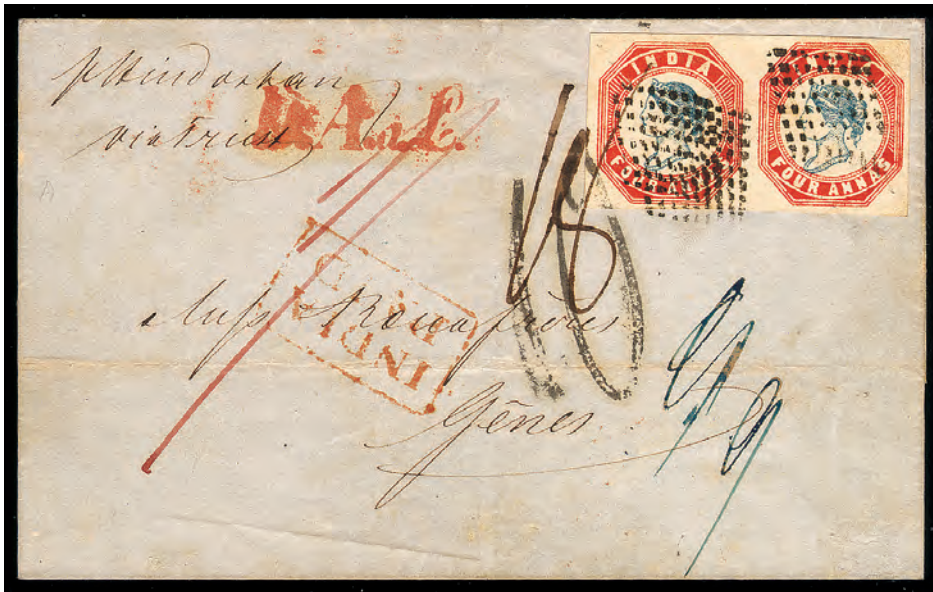 p Hindostan
via Triest
B.A.2.
INDIA
FOUR ANNAS
INDIA
FOUR ANNAS
18
10
INDIA
PAID
Mess Rocca frères
Gênes
9